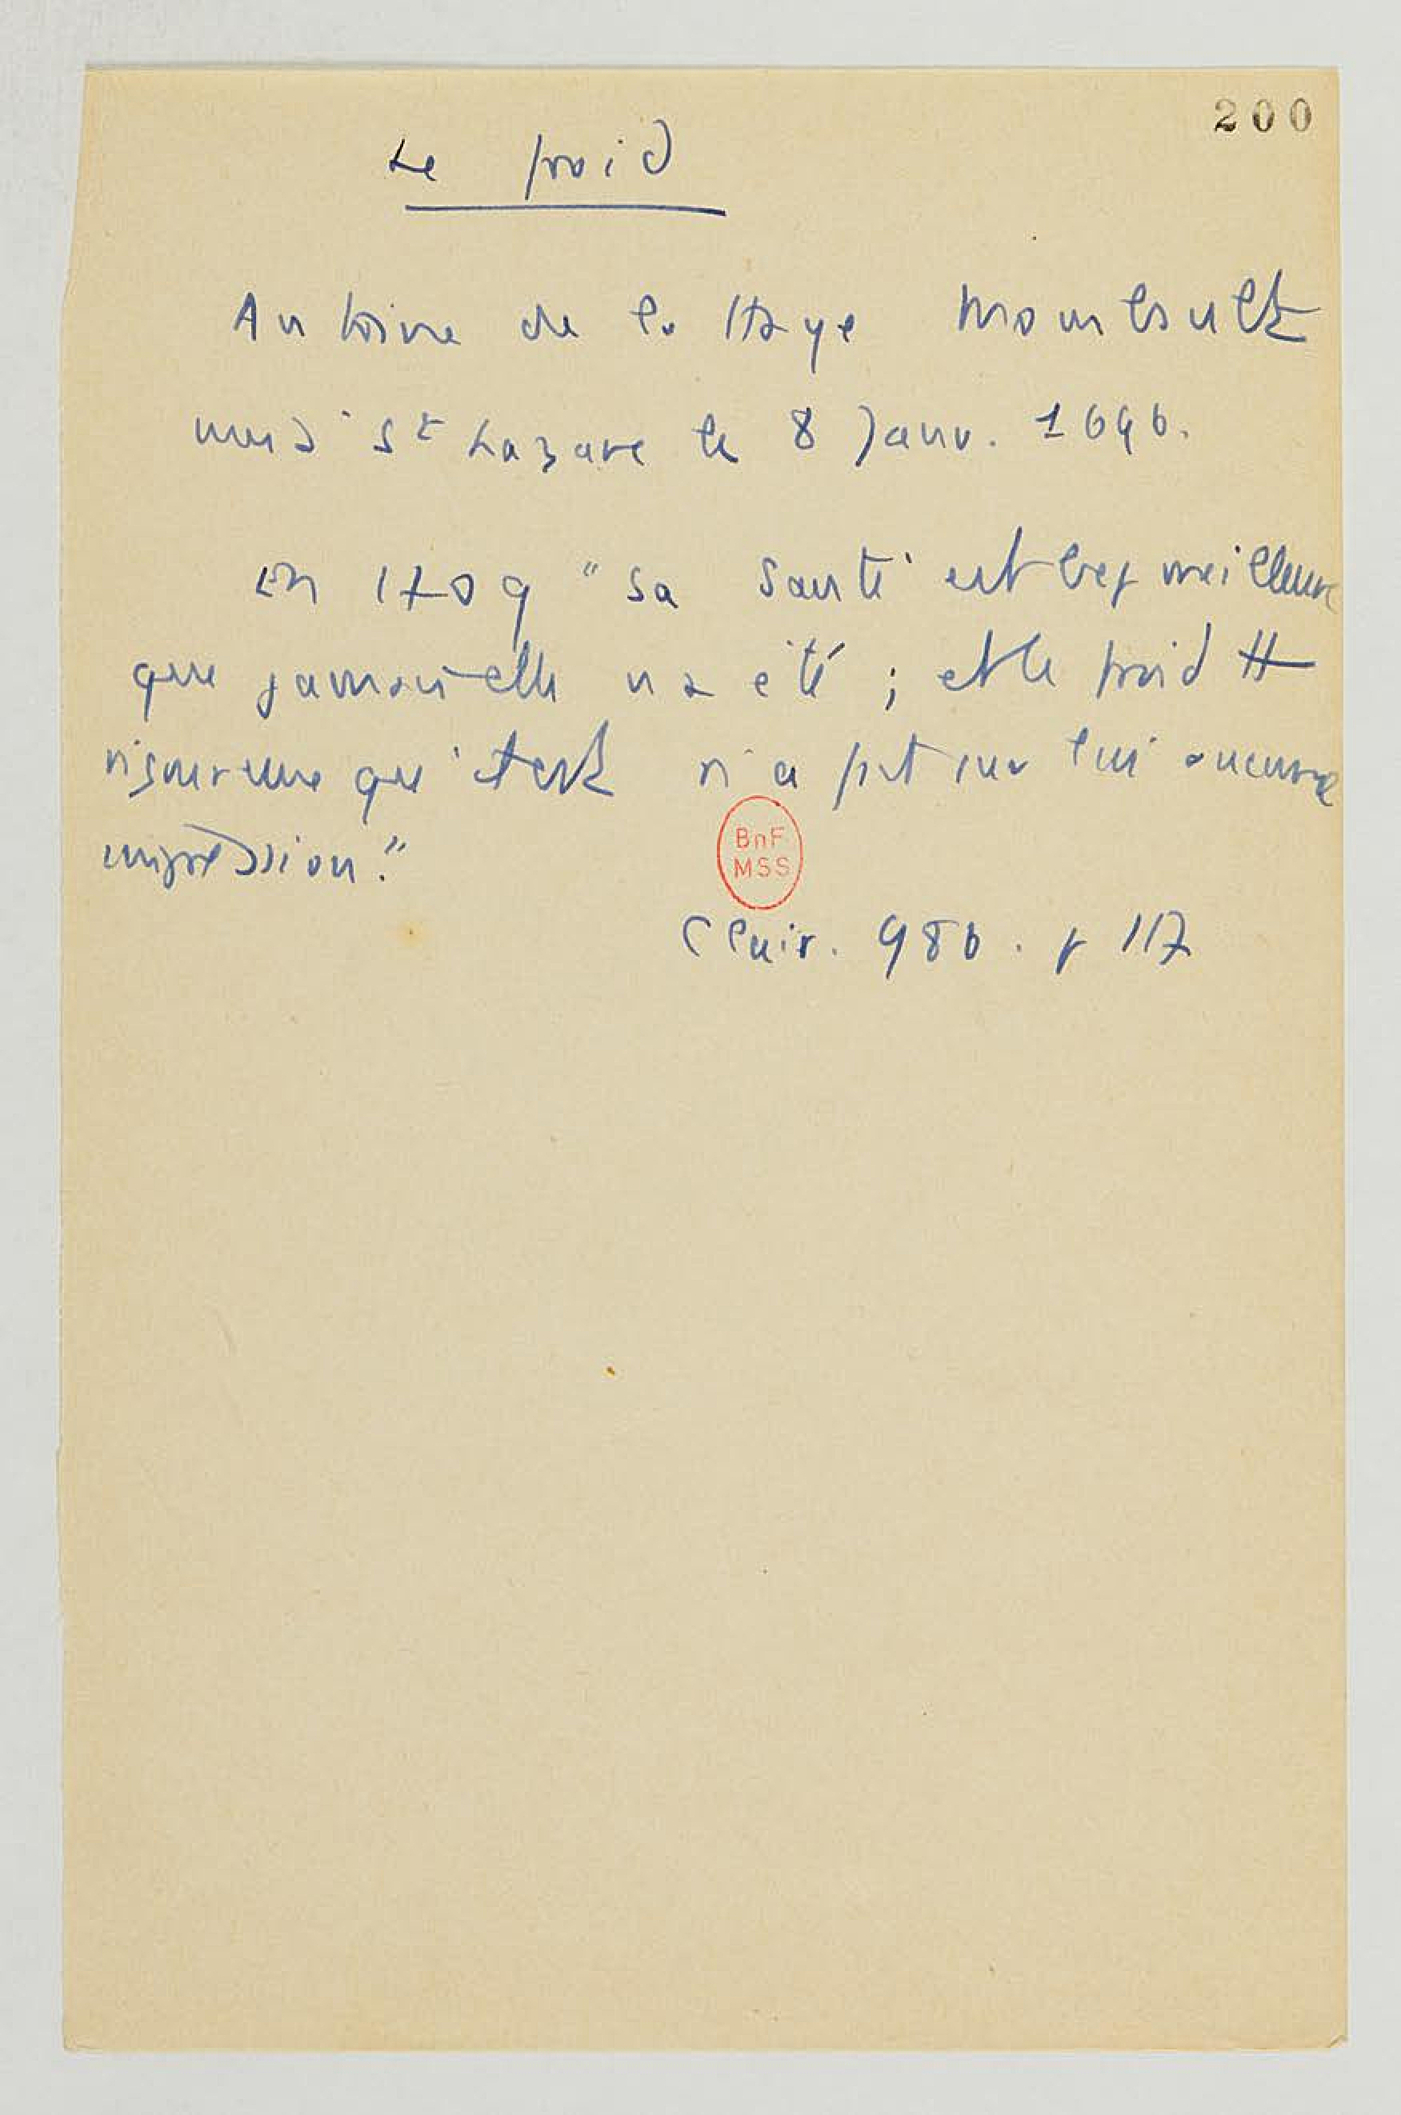 200
Le froid
Antoine de la Haye Montbault
mis à St Lazare le 8 Janv. 1696.
En 1709 "sa santé est bcp meilleure
que jamais elle n'a été ; et le froid tt
rigoureux qu'il est n'a fait sur lui aucune
impression."
BnF
MSS
Clair. 986. p 117